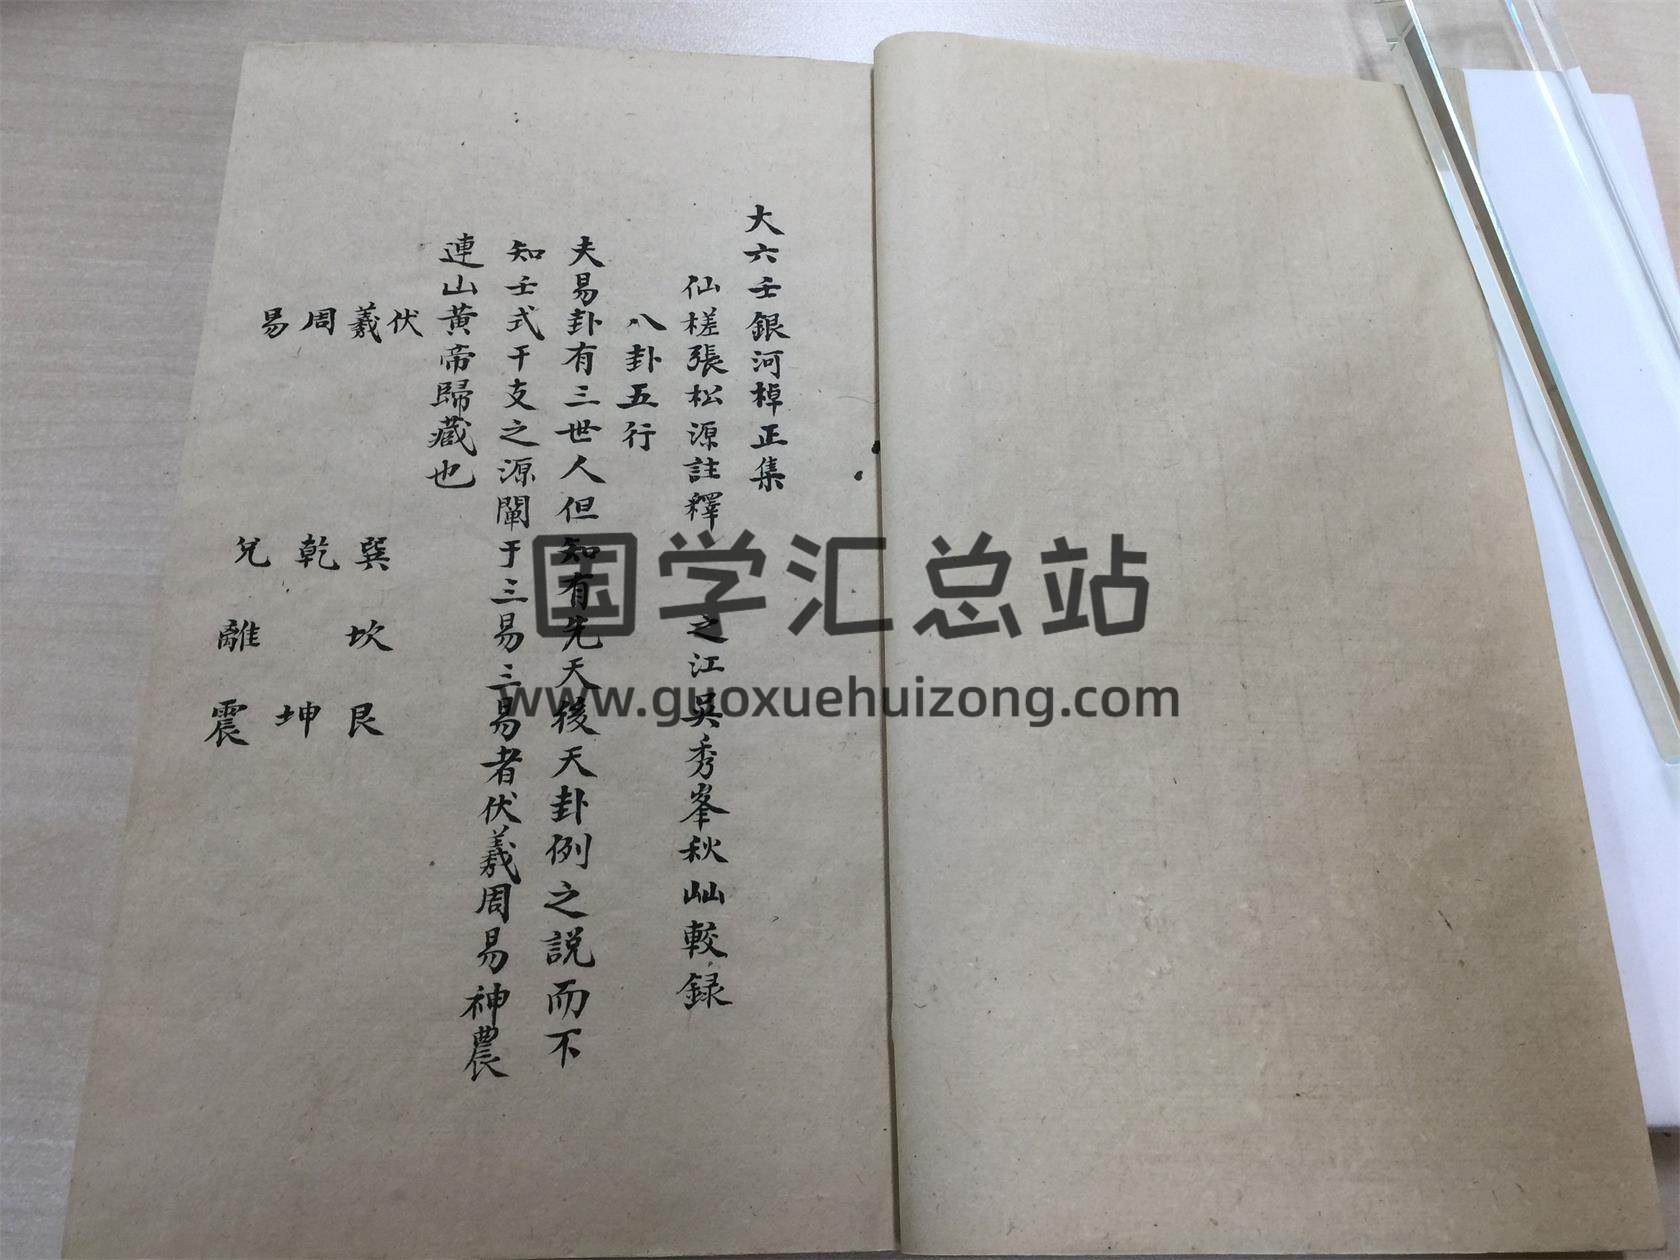 大六壬銀河棹正集
仙槎張松源註釋 之江吳秀峯秋屾較錄
八卦五行
夫易卦有三世人但知有先天後天卦例之説而不
知壬式干支之源闡于三易三易者伏羲周易神農
連山黄帝歸藏也
伏羲周易
巽乾兌
坎離
艮坤震
国学汇总站
www.guoxuehuizong.com